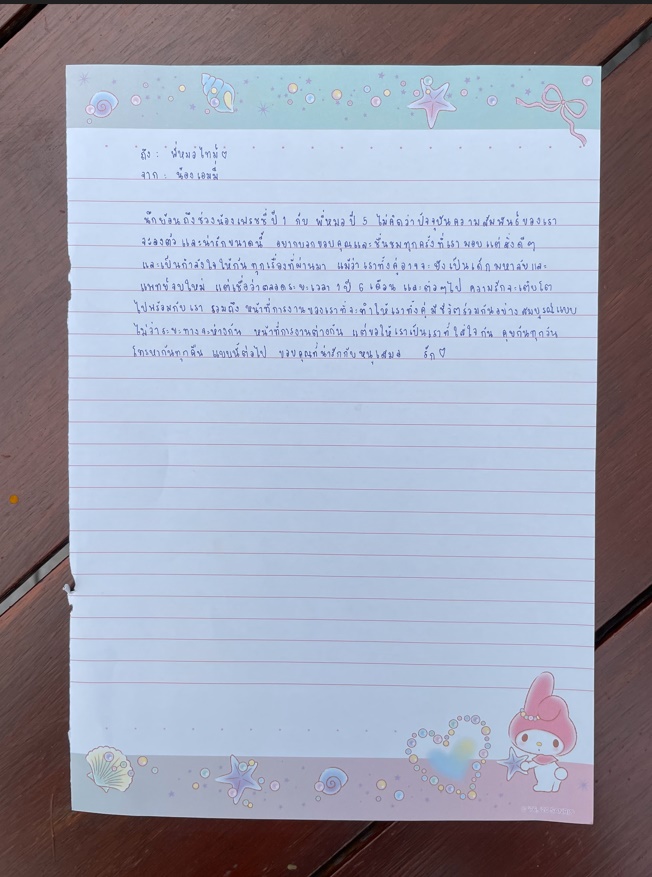 ถึง : พี่หมอไทม์ ♡
จาก : น้องเอมมี่
นึกย้อนถึงช่วงน้องเฟรชชี่ปี 1 กับ พี่หมอปี 5 ไม่คิดว่าปัจจุบันความสัมพันธ์ของเรา
จะลงตัว และน่ารักขนาดนี้ อยากบอกขอบคุณและชื่นชมทุกครั้งที่เรา มอบแต่สิ่งดีๆ
และเป็นกำลังใจให้กัน ทุกเรื่องที่ผ่านมา แม้ว่าเราทั้งคู่อาจจะยังเป็นเด็กมหาลัยและ
แพทย์จบใหม่ แต่เชื่อว่าตลอดระยะเวลา 1 ปี 6 เดือน และต่อๆไป ความรักจะเติบโต
ไปพร้อมกับเรา รวมถึง หน้าที่การงานของเราที่จะทำให้เราทั้งคู่ มีชีวิตร่วมกันอย่างสมบูรณ์แบบ
ไม่ว่าระยะทางจะห่างกัน หน้าที่การงานต่างกัน แต่ขอให้เราเป็นเราที่ใส่ใจกัน คุยกันทุกวัน
โทรหากันทุกคืน แบบนี้ต่อไป ขอบคุณที่น่ารักกับหนูเสมอ รัก ♡